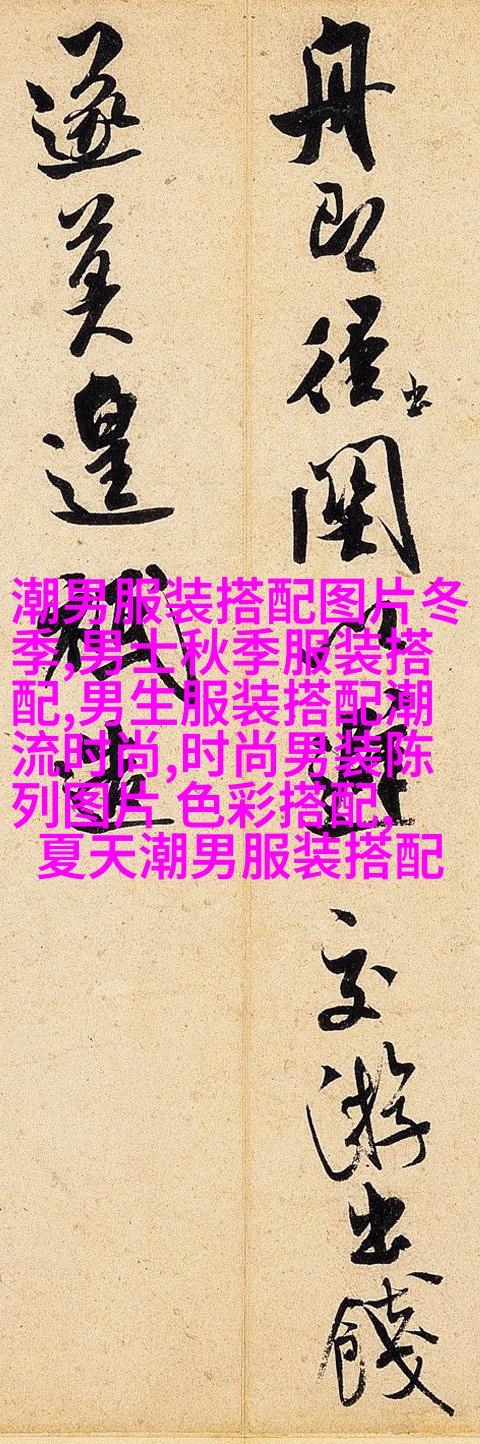 舟即徑出關以避交游出餞
遂莫遑祗造
潮男服装搭配图片冬
季,男士秋季服装搭
配,男生服装搭配潮
流时尚,时尚男装陈
列图片 色彩搭配,
夏天潮男服装搭配